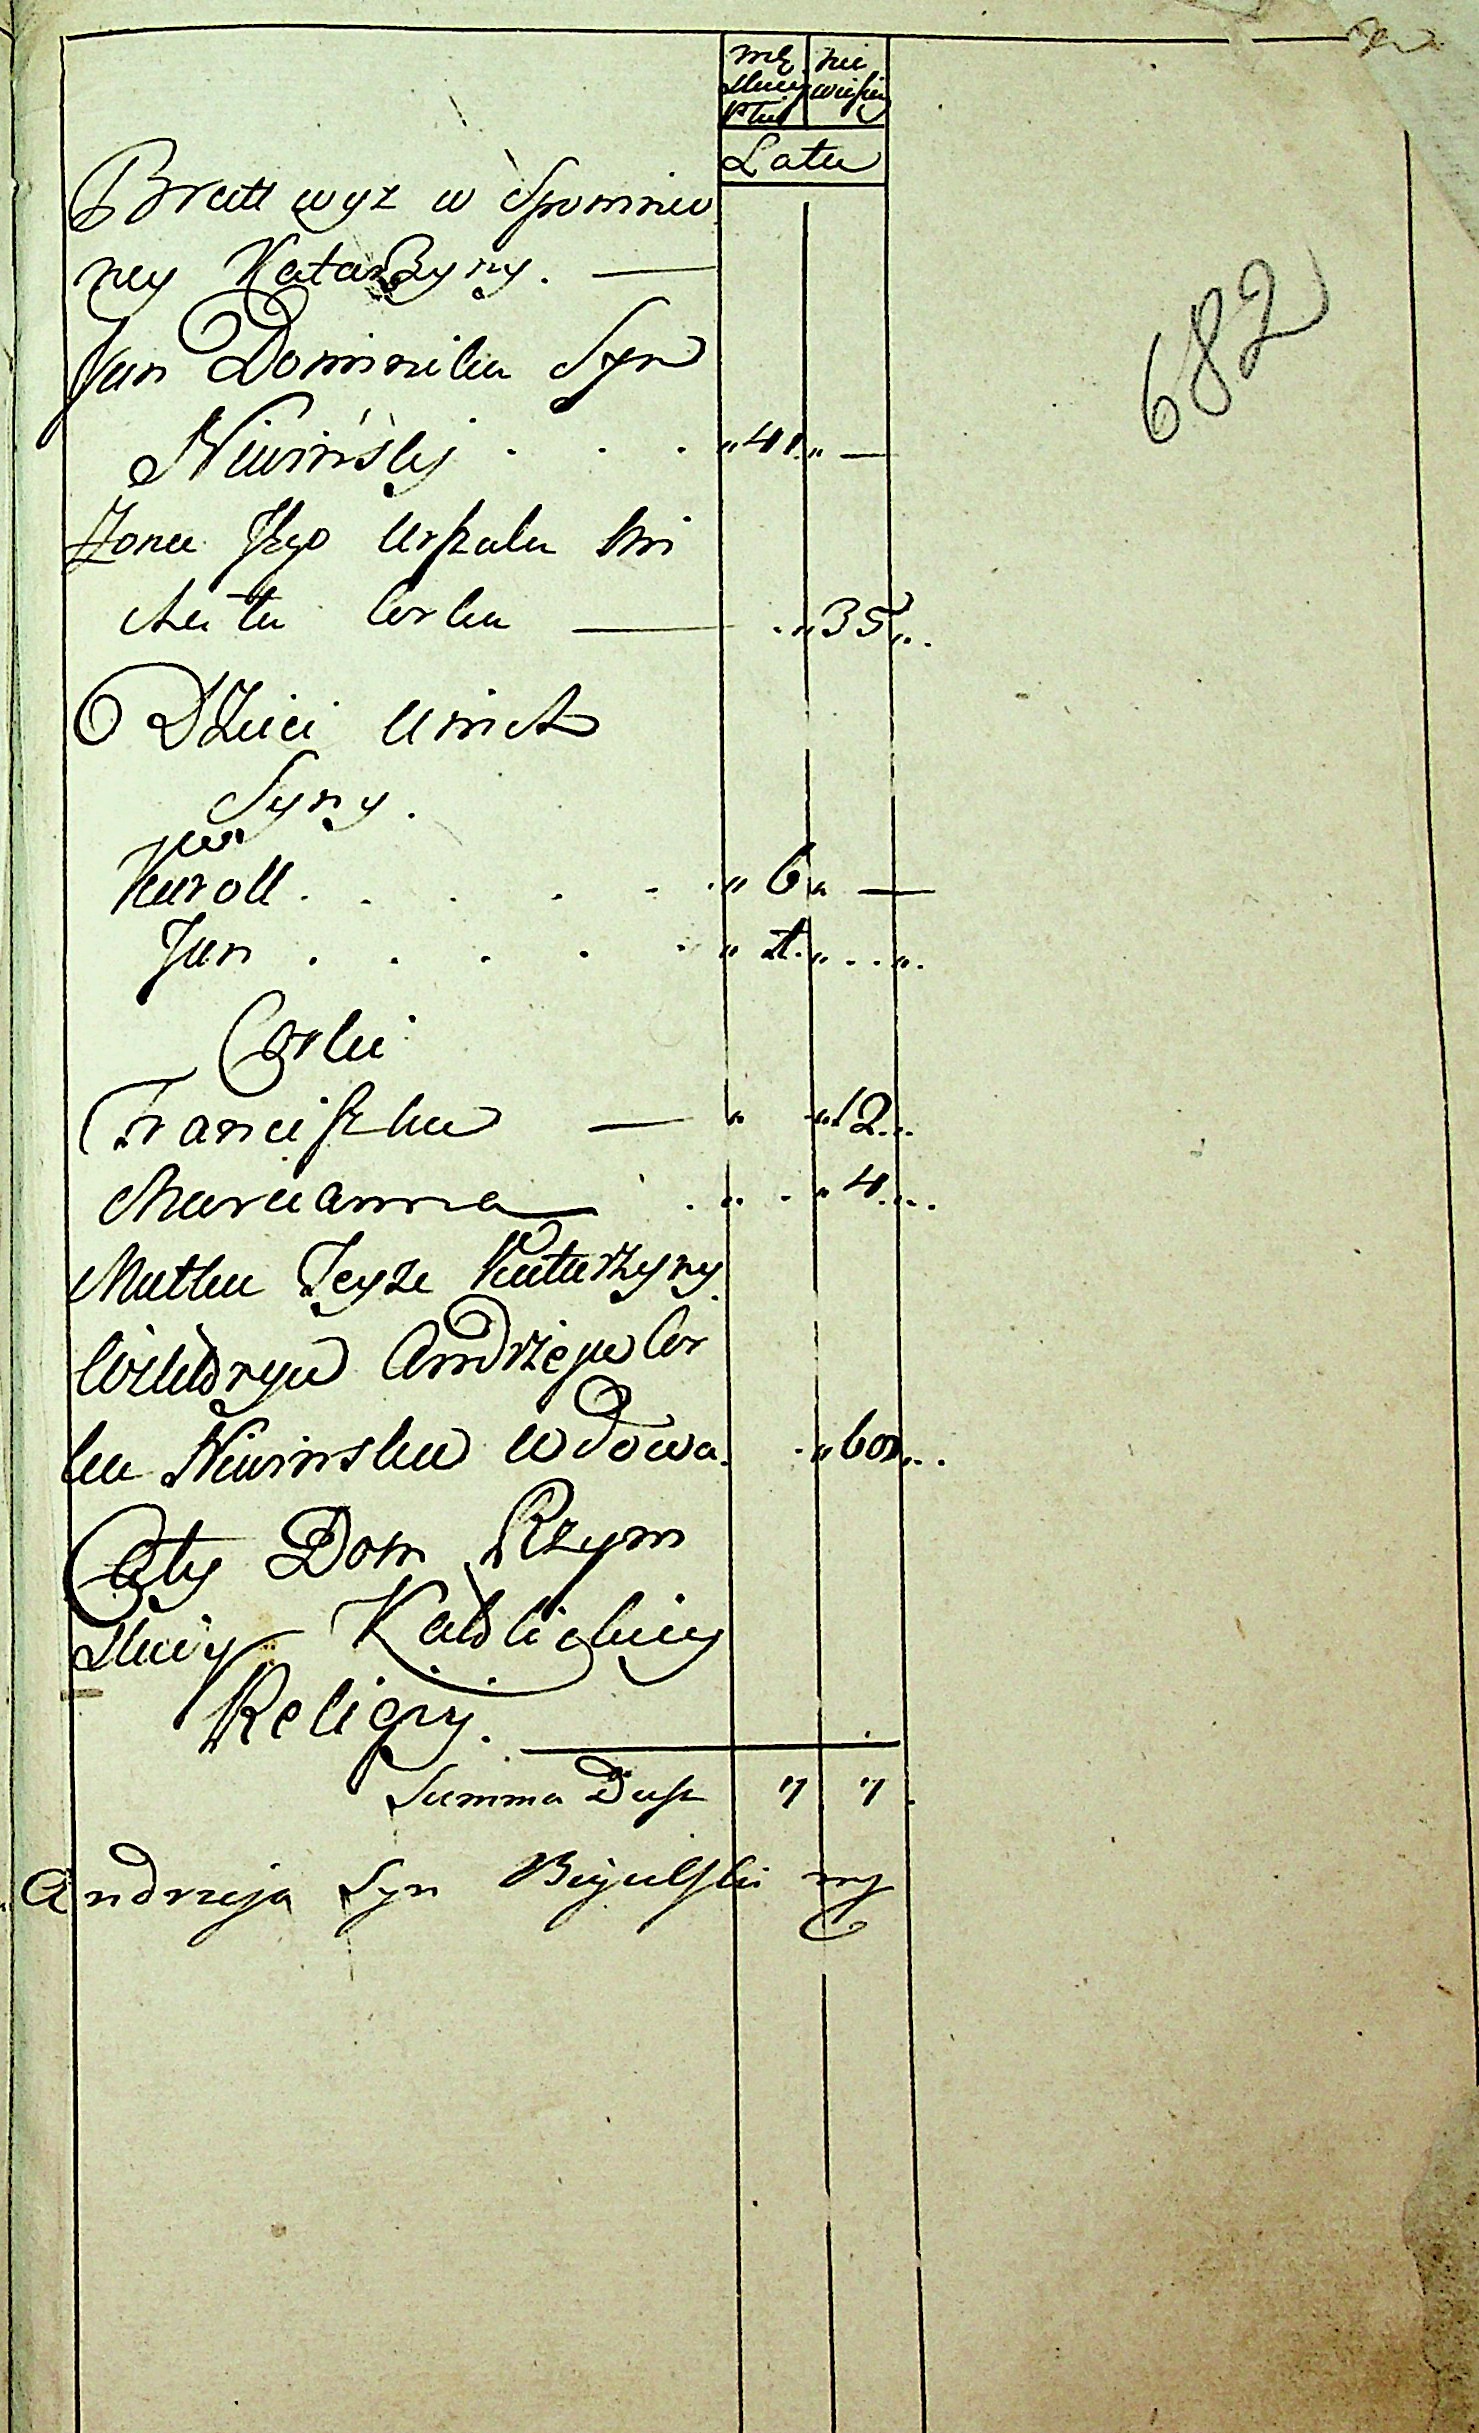 mę nie
skiej wiesciej
Płci
Lata
Bratt wyz w Spomnio
ney Katarzyny. —
Jan Dominika Syn
Niwiński . . . „ 41. „ —
Zona Jego Urszula Mi
chała Corka — . „ 35 „
Dzieci Unich
Syny.
Karoll . . . . „ 6 „ —
Jan . . . . . „ „ . . „
Corki
Franciszka — „ „ 12 „
Marianna — . „ . „ 4 . „
Matka Teyze Katarzyny
Andrzeja Cor
ka Niwinska Wdowa. . „ 60 „
Cały Dom Rzym
skiey Katolickiey
Religiy.
Summa Dusz 7 7
Andrzeja Syn
682